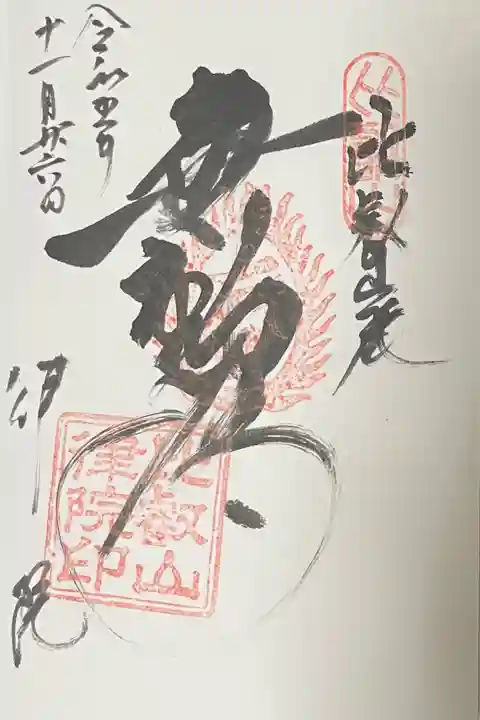 比叡山麓
無動
令和四年
十一月廿六日
律院
比叡山
律院印